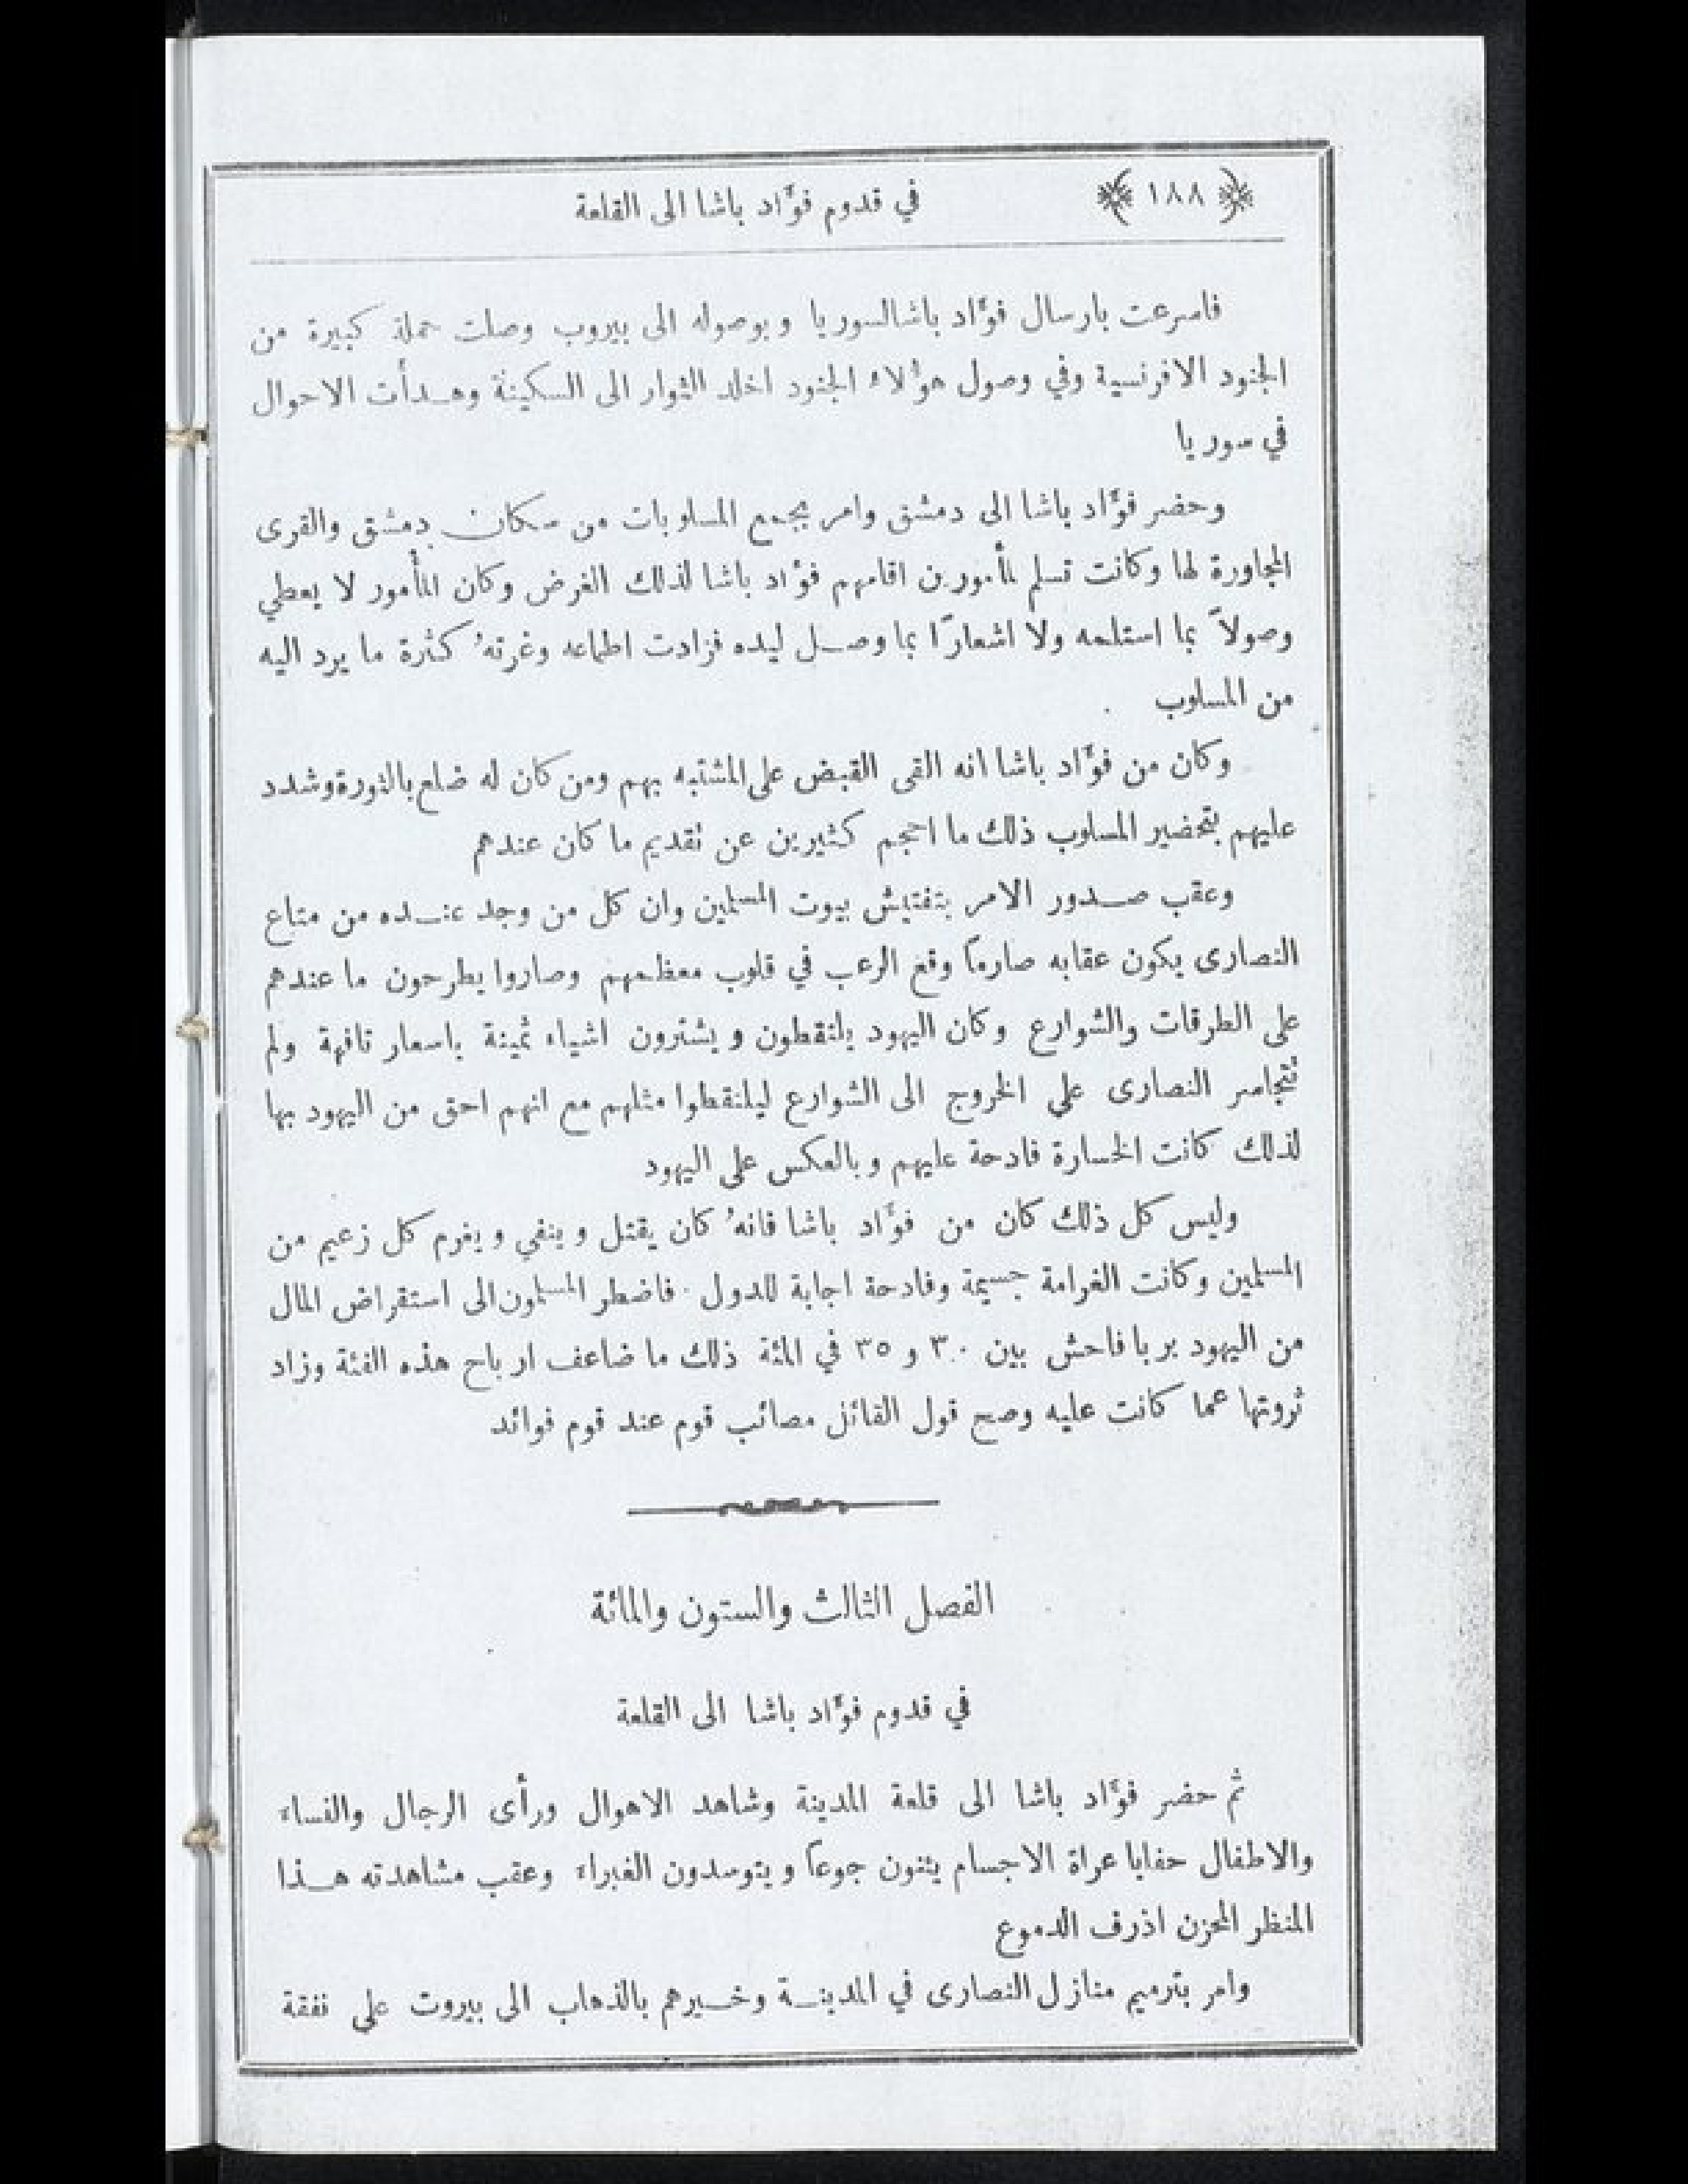 ﴿ ١٨٨ ﴾ في قدوم فوٌاد باشا الى القلعة
فاسرعت بارسال فوٌاد باشا لسوريا وبوصوله الى بيروب وصلت حملة كبيرة من
الجنود الافرنسية وفي وصول هوٌلاء الجنود اخلد الثوار الى السكينة وهدأت الاحوال
في سوريا
وحضر فوٌاد باشا الى دمشق وامر بجمع المسلوبات من سكان دمشق والقرى
المجاورة لها وكانت تسلم لمأمورين اقامهم فوٌاد باشا لذلك الغرض وكان المأمور لا يعطي
وصولاً بما استلمه ولا اشعارًا بما وصل ليده فزادت اطماعه وغرتهُ كثرة ما يرد اليه
من المسلوب
وكان من فوٌاد باشا انه القى القبض على المشتبه بهم ومن كان له ضلع بالثورة وشدد
عليهم بتحضير المسلوب ذلك ما احجم كثيرين عن تقديم ما كان عندهم
وعقب صدور الامر بتفتيش بيوت المسلمين وان كل من وجد عنده من متاع
النصارى يكون عقابه صارماً وقع الرعب في قلوب معظمهم وصاروا يطرحون ما عندهم
على الطرقات والشوارع وكان اليهود يلتقطون ويشترون اشياء ثمينة باسعار تافهة ولم
تتجاسر النصارى على الخروج الى الشوارع ليلتقطوا مثلهم مع انهم احق من اليهود بها
لذلك كانت الخسارة فادحة عليهم وبالعكس على اليهود
وليس كل ذلك كان من فوٌاد باشا فانهُ كان يقتل وينفي ويغرم كل زعيم من
المسلمين وكانت الغرامة جسيمة وفادحة اجابة للدول . فاضطر المسلمون الى استقراض المال
من اليهود بربا فاحش بين ٣٠ و ٣٥ في المئة ذلك ما ضاعف ارباح هذه الفئة وزاد
ثروتها عما كانت عليه وصح قول القائل مصائب قوم عند قوم فوائد
الفصل الثالث والستون والمائة
في قدوم فوٌاد باشا الى القلعة
ثم حضر فوٌاد باشا الى قلعة المدينة وشاهد الاهوال ورأى الرجال والنساء
والاطفال حفايا عراة الاجسام يئنون جوعاً ويتوسدون الغبراء وعقب مشاهدته هذا
المنظر المحزن اذرف الدموع
وامر بترميم منازل النصارى في المدينة وخيرهم بالذهاب الى بيروت على نفقة